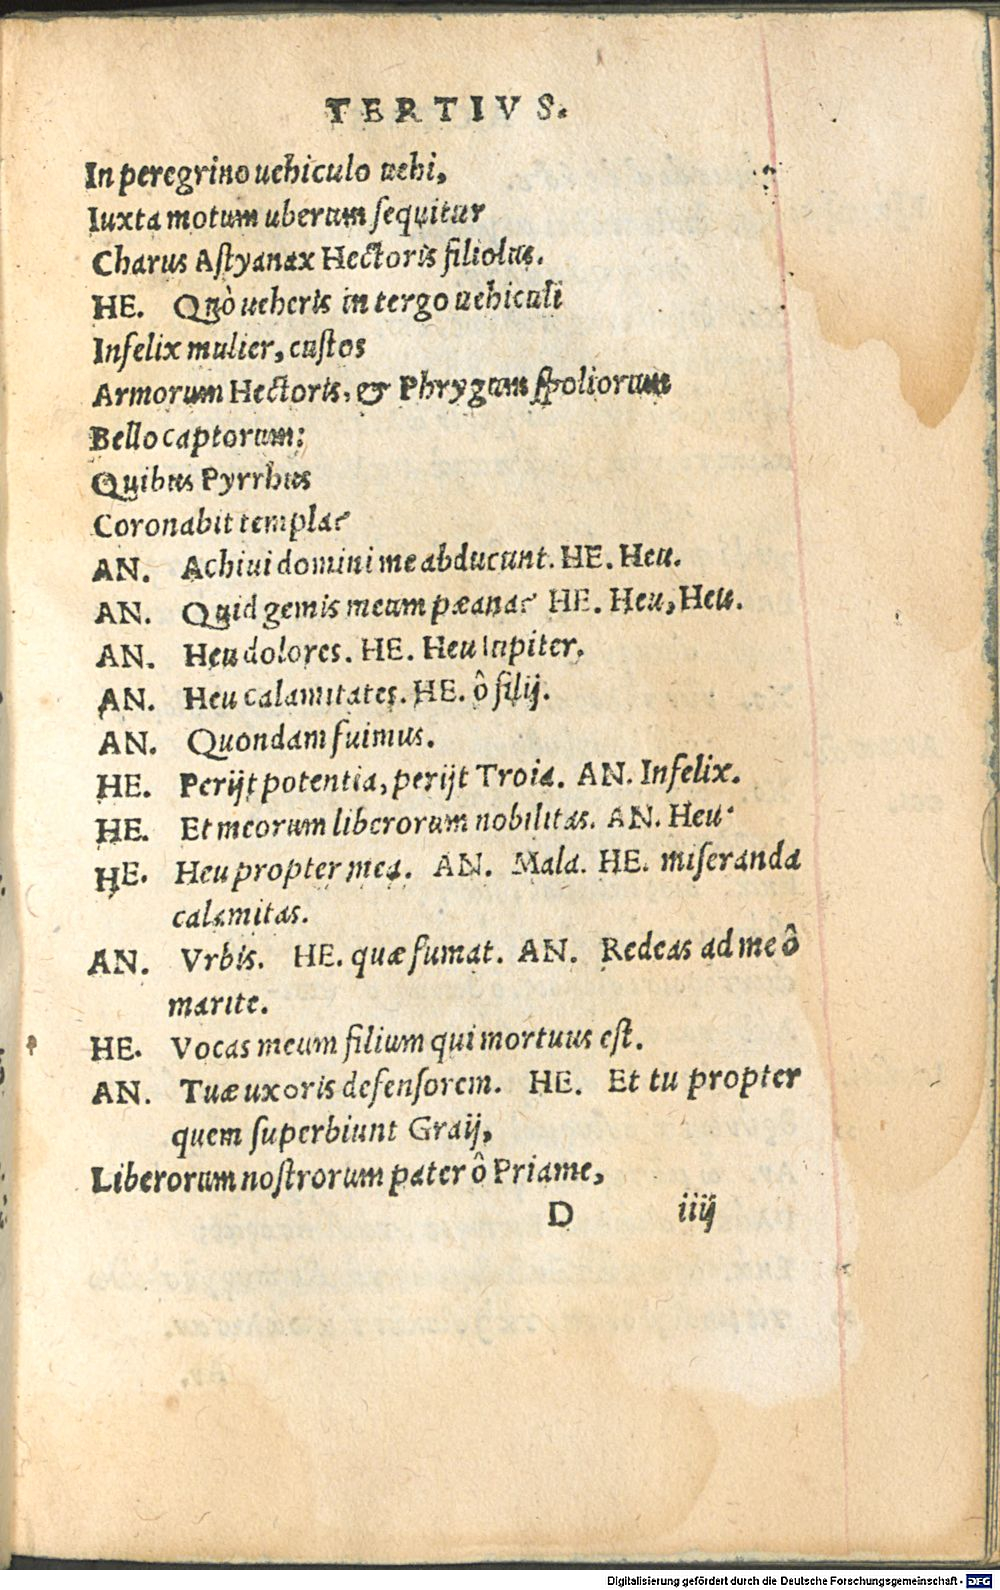 TERTIVS.
In peregrino uehiculo uehi,
Iuxta motum uberum sequitur
Charus Astyanax Hectoris filiolus.
HE. Quò ueheris in tergo uehiculi
Infelix mulier, custos
Armorum Hectoris, & Phrygum spoliorum
Bello captorum:
Quibus Pyrrhus
Coronabit templa?
AN. Achiui domini me abducunt. HE. Heu.
AN. Quid gemis meum pæana? HE. Heu, Heu.
AN. Heu dolores. HE. Heu Iupiter.
AN. Heu calamitates. HE. ô filij.
AN. Quondam fuimus.
HE. Perijt potentia, perijt Troia. AN. Infelix.
HE. Et meorum liberorum nobilitas. AN. Heu.
HE. Heu propter mea. AN. Mala. HE. miseranda
calamitas.
AN. Vrbis. HE. quæ fumat. AN. Redeas ad me ô
marite.
HE. Vocas meum filium qui mortuus est.
AN. Tuæ uxoris defensorem. HE. Et tu propter
quem superbiunt Graij,
Liberorum nostrorum pater ô Priame,
D iiij
Digitalisierung gefördert durch die Deutsche Forschungsgemeinschaft - DFG